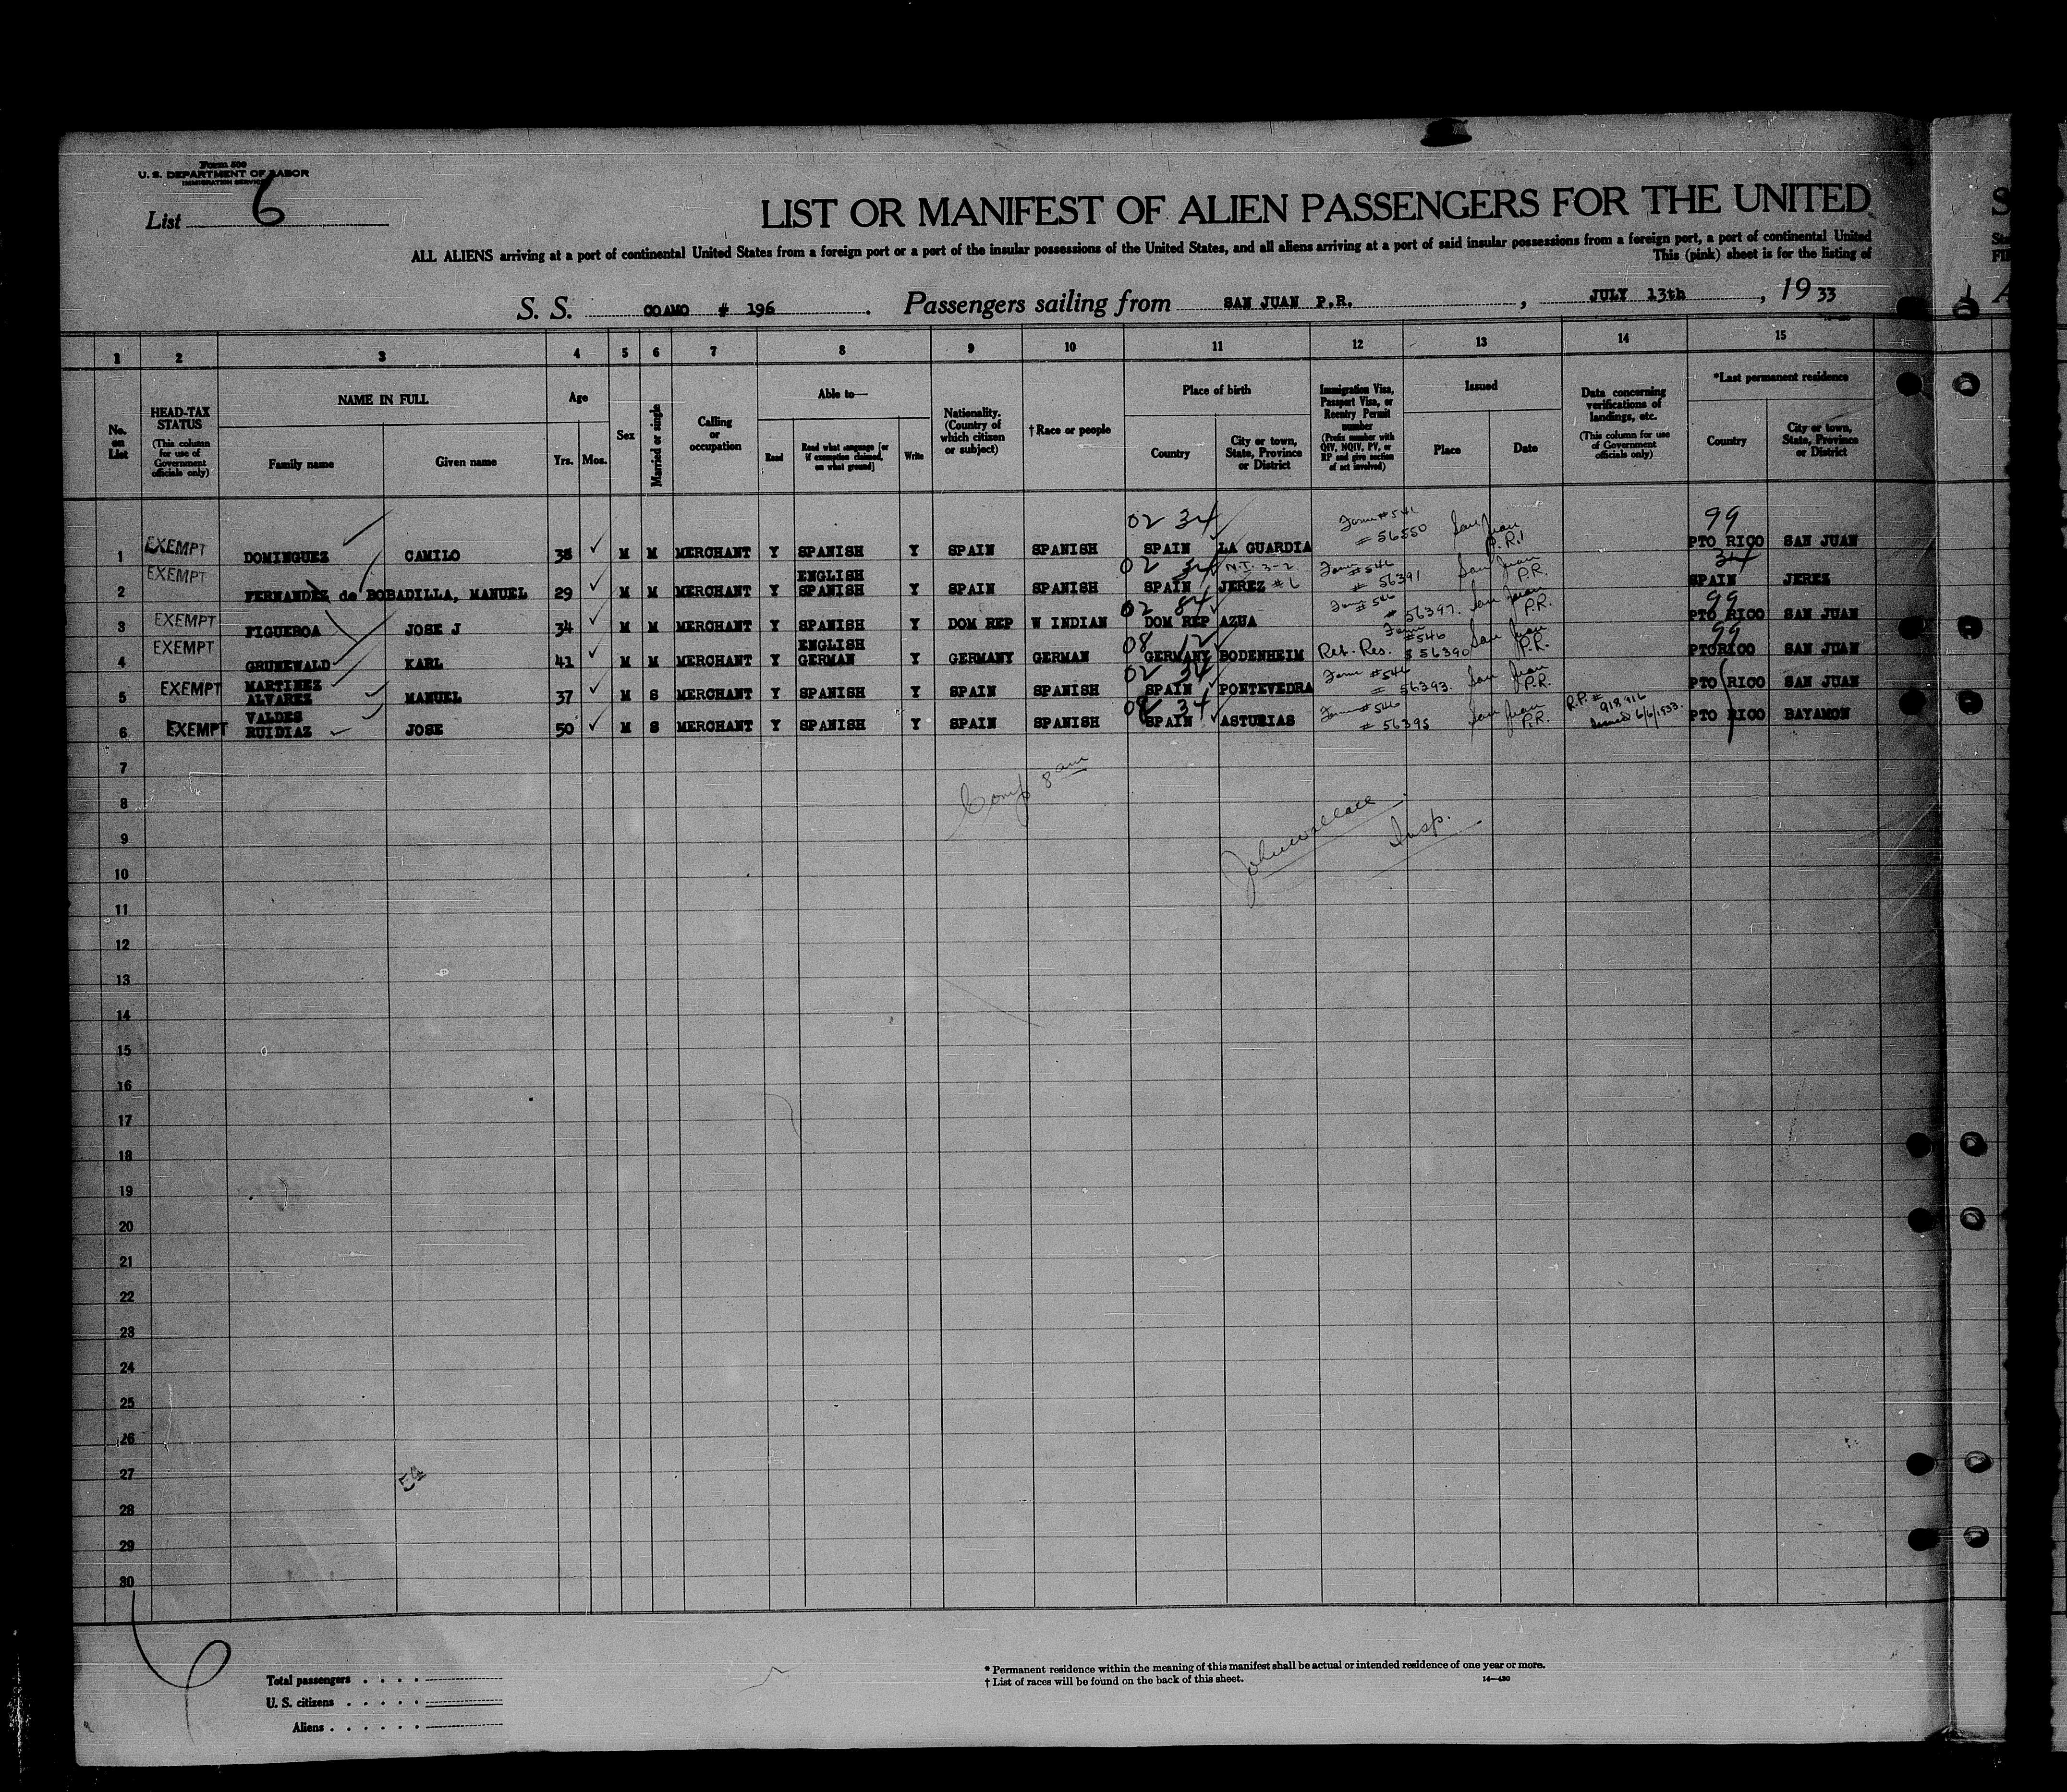 Form 500
U. S. DEPARTMENT OF LABOR
IMMIGRATION SERVICE
List 6
LIST OR MANIFEST OF ALIEN PASSENGERS FOR THE UNITED
ALL ALIENS arriving at a port of continental United States from a foreign port or a port of the insular possessions of the United States, and all aliens arriving at a port of said insular possessions from a foreign port, a port of continental United
This (pink) sheet is for the listing of
S. S. COAMO # 196. Passengers sailing from SAN JUAN P.R., JULY 13th, 19 33
1 2 3 4 5 6 7 8 9 10 11 12 13 14 15
No. on List
HEAD-TAX STATUS (This column for use of Government officials only)
NAME IN FULL
Family name Given name
Age
Yrs. Mos.
Sex
Married or single
Calling or occupation
Able to—
Read Read what language [or if exemption claimed, on what ground] Write
Nationality. (Country of which citizen or subject)
† Race or people
Place of birth
Country City or town, State, Province or District
Immigration Visa, Passport Visa, or Reentry Permit number (Prefix number with QIV, NQIV, PV, or RP and give section of act involved)
Issued
Place Date
Data concerning verifications of landings, etc. (This column for use of Government officials only)
*Last permanent residence
Country City or town, State, Province or District
02 34 Form #541 99
1 EXEMPT DOMINGUEZ CAMILO 38 M M MERCHANT Y SPANISH Y SPAIN SPANISH SPAIN LA GUARDIA # 56550 San Juan P.R. PTO RICO SAN JUAN
02 34 N.I. 3-2 Form #546 34
2 EXEMPT FERNANDEZ de BOBADILLA, MANUEL 29 M M MERCHANT Y ENGLISH SPANISH Y SPAIN SPANISH SPAIN JEREZ #6 # 56391 San Juan P.R. SPAIN JEREZ
02 84 Form #546 99
3 EXEMPT FIGUEROA JOSE J 34 M M MERCHANT Y SPANISH Y DOM REP W INDIAN DOM REP AZUA # 56397. San Juan P.R. PTO RICO SAN JUAN
08 12 Form #546 99
4 EXEMPT GRUNEWALD KARL 41 M M MERCHANT Y ENGLISH GERMAN Y GERMANY GERMAN GERMANY BODENHEIM Ret. Res. # 56390 San Juan P.R. PTORICO SAN JUAN
02 34 Form #546
5 EXEMPT MARTINEZ ALVAREZ MANUEL 37 M S MERCHANT Y SPANISH Y SPAIN SPANISH SPAIN PONTEVEDRA # 56393. San Juan P.R. PTO RICO SAN JUAN
02 34 Form #546
6 EXEMPT VALDES RUIDIAZ JOSE 50 M S MERCHANT Y SPANISH Y SPAIN SPANISH SPAIN ASTURIAS # 56395 San Juan P.R. R.P. # 918916 Issued 6/6/1933. PTO RICO BAYAMON
7
Comp 8 am
8
John Wallace
Insp.
9
10
11
12
13
14
15
16
17
18
19
20
21
22
23
24
25
26
27
54
28
29
30
Total passengers
U. S. citizens
Aliens
* Permanent residence within the meaning of this manifest shall be actual or intended residence of one year or more.
† List of races will be found on the back of this sheet.
14—430